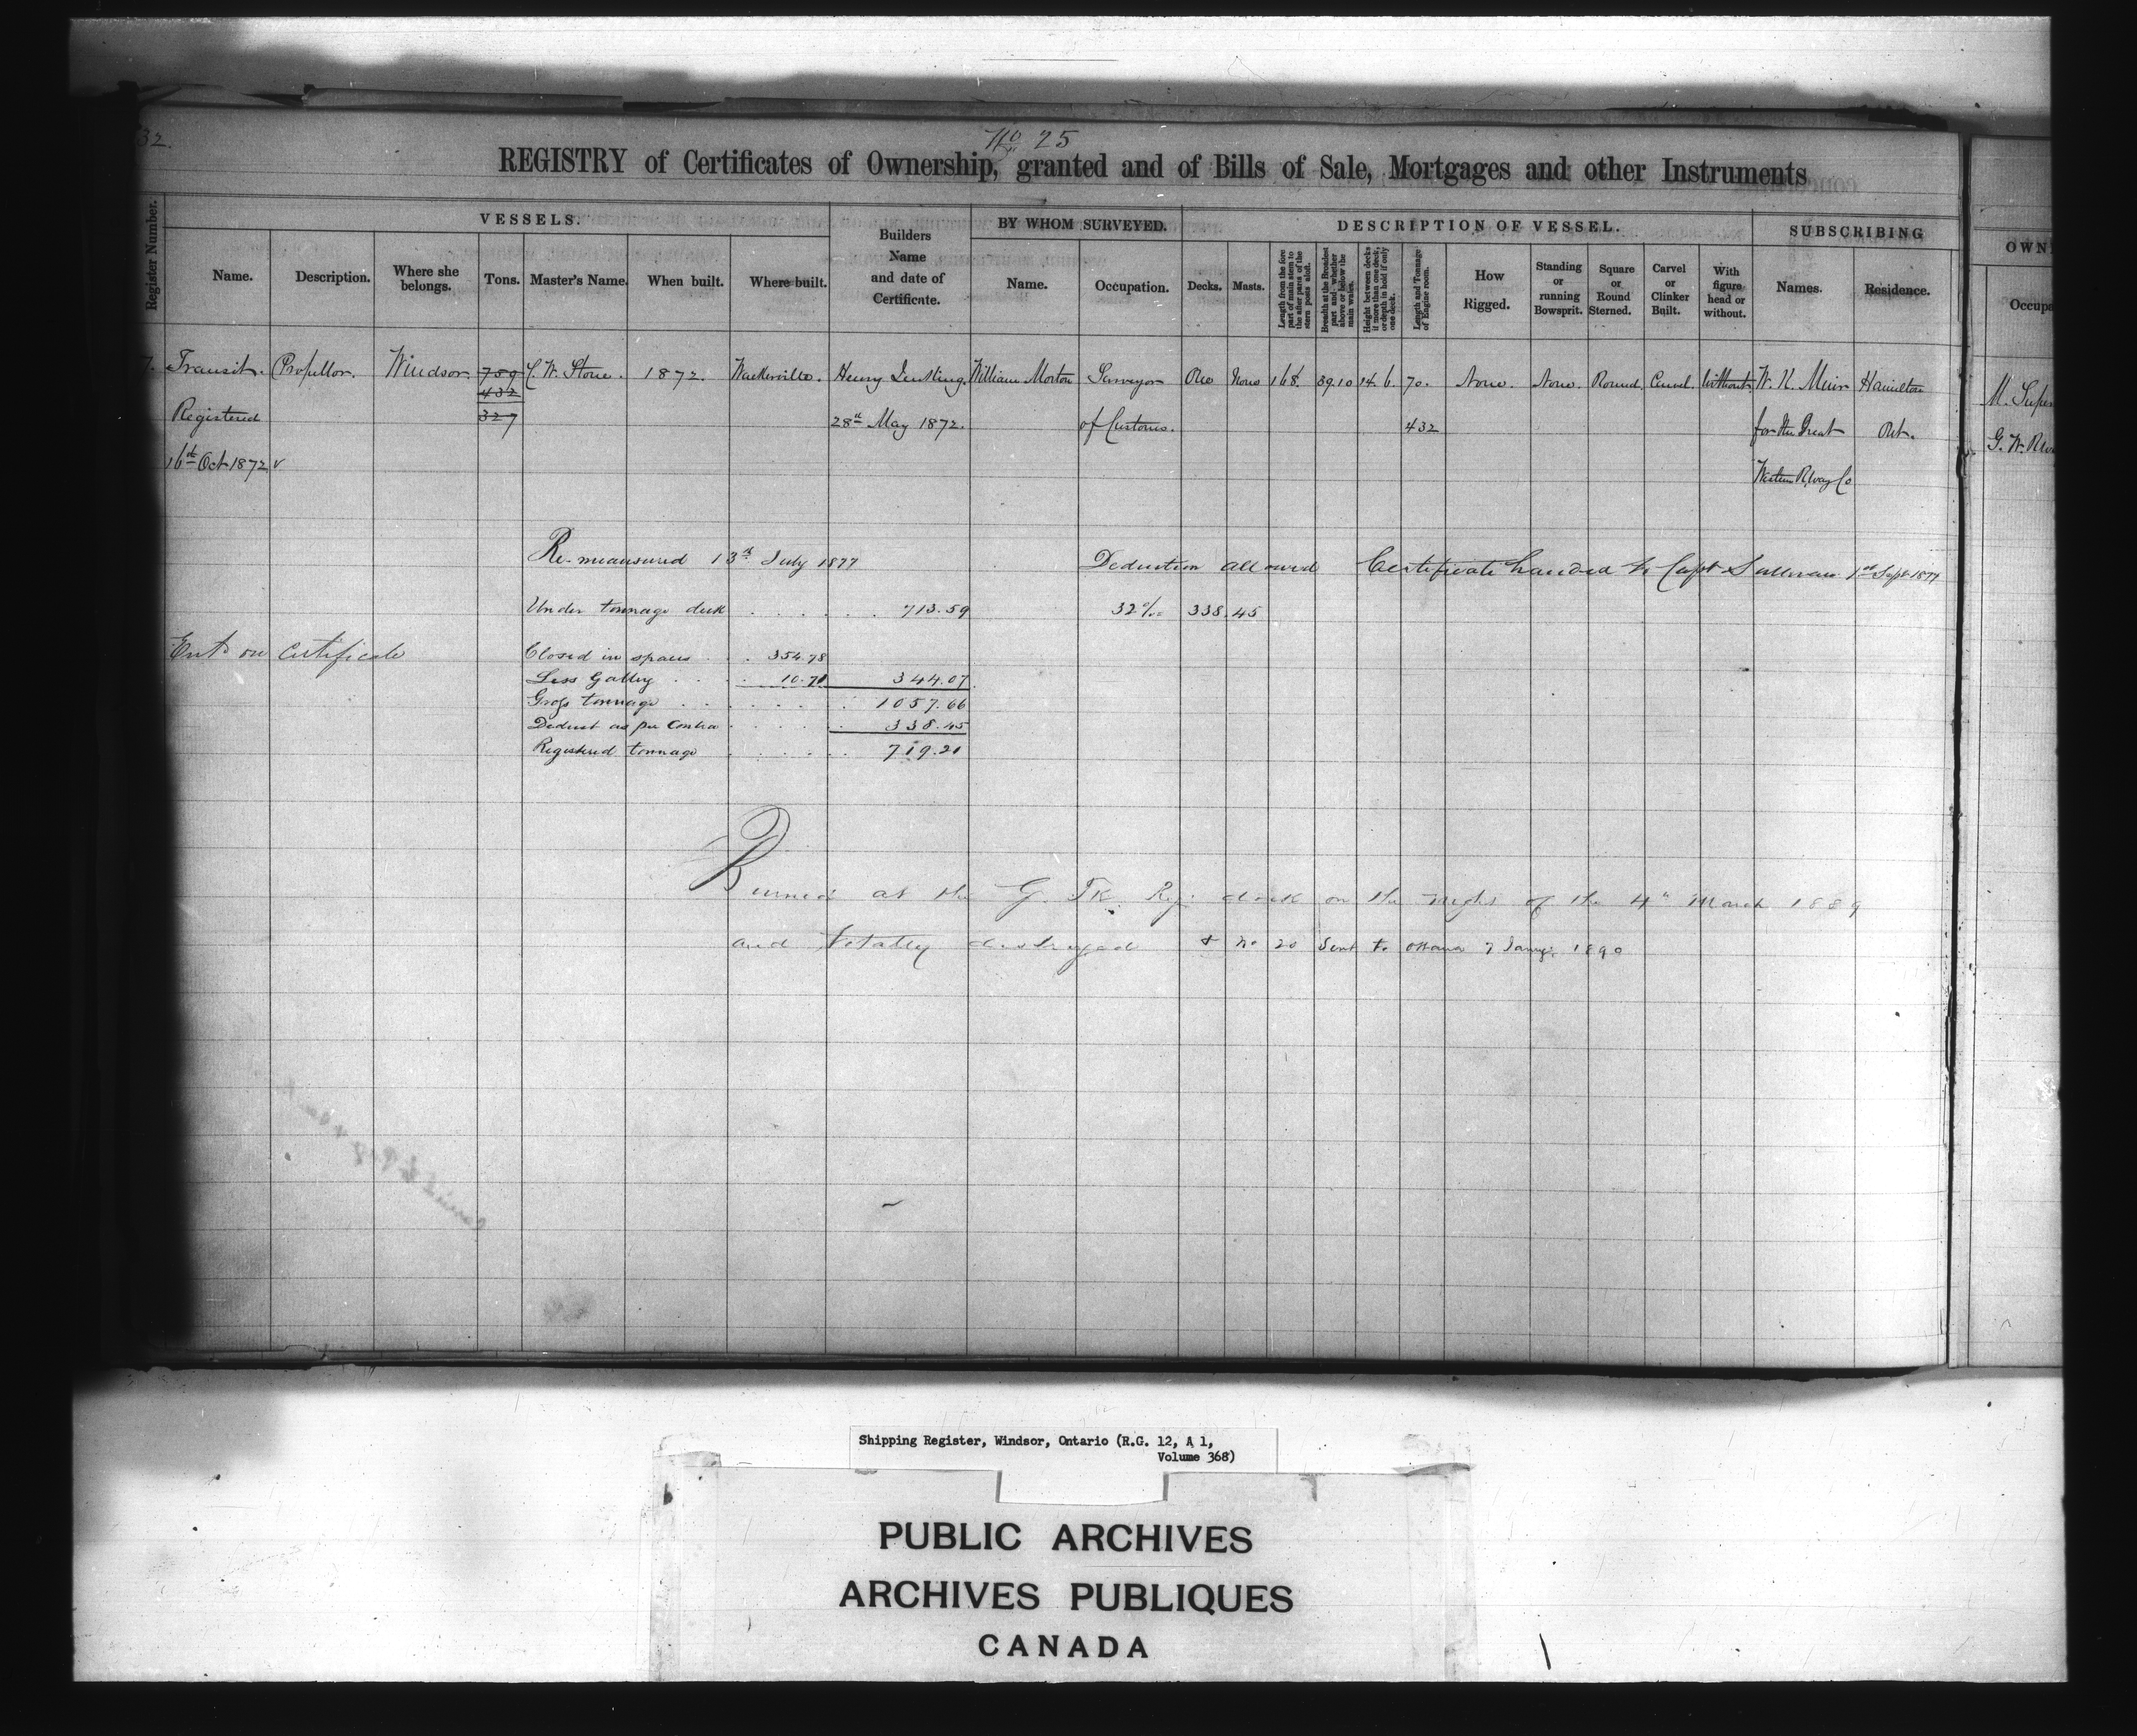 32.
No 25
REGISTRY of Certificates of Ownership, granted and of Bills of Sale, Mortgages and other Instruments
Register Number.
VESSELS.
Name.
Description.
Where she belongs.
Tons.
Master's Name.
When built.
Where built.
Builders Name and date of Certificate.
BY WHOM SURVEYED.
Name.
Occupation.
DESCRIPTION OF VESSEL.
Decks.
Masts.
Length from the fore part of main stem to the after part of the stern post aloft.
Breadth at the Broadest part and whether above or below the main wales.
Height between decks if more than one deck, or depth in hold if only one deck.
Length and Tonnage of Engine room.
How Rigged.
Standing or running Bowsprit.
Square or Round Sterned.
Carvel or Clinker Built.
With figure head or without.
SUBSCRIBING
Names.
Residence.
OWN
Occupa
7. Transit. Propellor. Windsor 789 C. W. Stone. 1872. Walkerville. Henry William Morton Surveyor One None 168. 39.10 14.6. 70. None. None. Round Carvel Without W. K. Muir Hamilton
432
M. Super
Registered 327 28th May 1872. of Customs. 432 for the Great Ont.
G. W. R
16th Oct 1872 Western R,way Co
Re-meausured 13th July 1877 Deduction allowed Certificate handed to Capt Sullivan 1st Sept 1877
Under tonnage deck . . . . . 713.59 32% 338.45
Entd on certificate Closed in spaces . . 354.78
Less Galley . . . 10.71 344.07
Gross tonnage . . . . . 1057.66
Deduct as per Contra . . . . 338.45
Registered tonnage . . . . . 719.21
Burned at the G. Tk. Ry. dock on the night of the 4th March 1889
and totally destroyed & No 20 Sent to Ottawa 7 Jany. 1890
Shipping Register, Windsor, Ontario (R.G. 12, A 1,
Volume 368)
PUBLIC ARCHIVES
ARCHIVES PUBLIQUES
CANADA